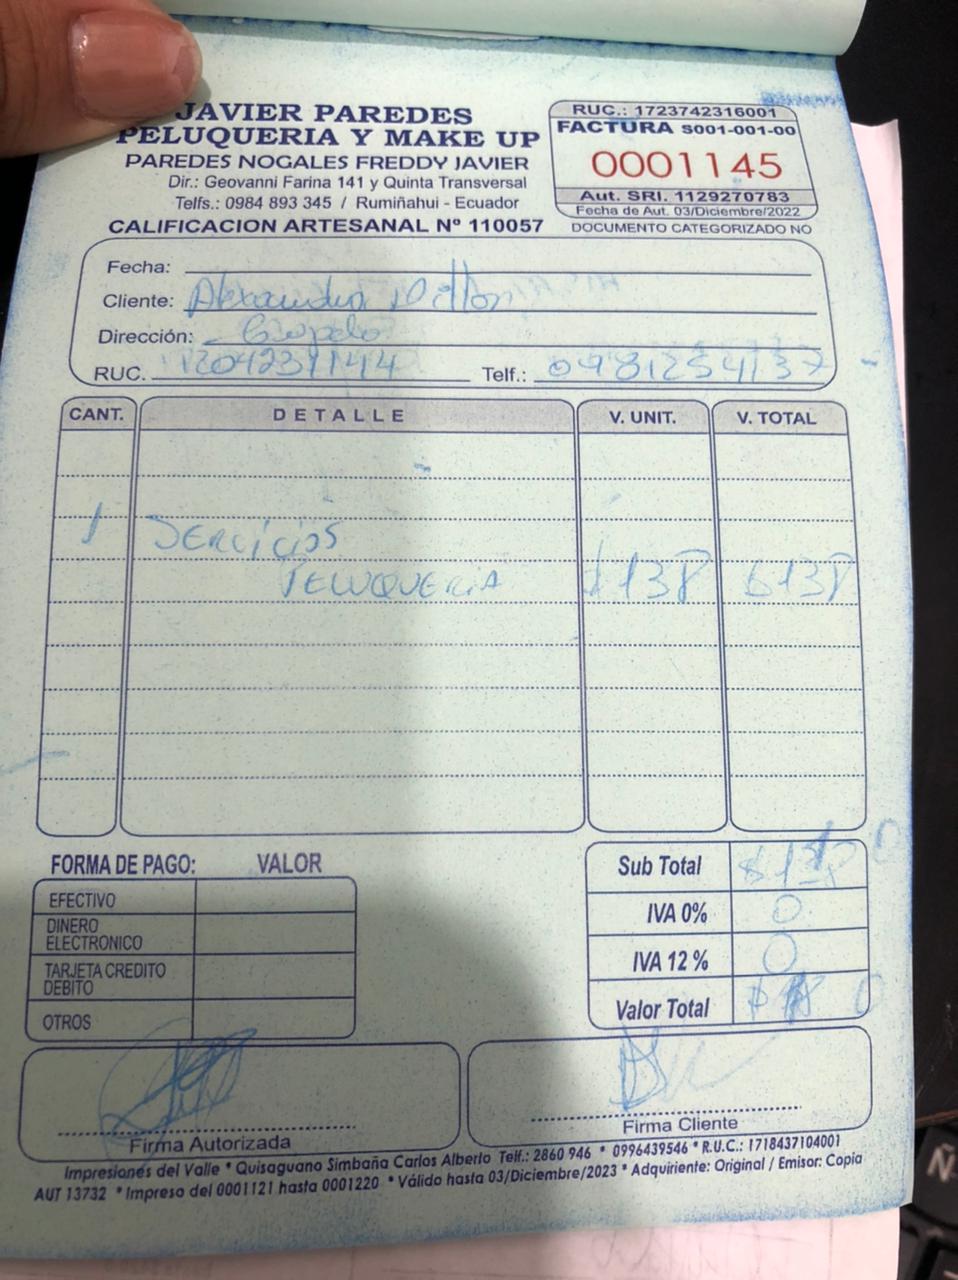 JAVIER PAREDES
PELUQUERIA Y MAKE UP
PAREDES NOGALES FREDDY JAVIER
Dir.: Geovanni Farina 141 y Quinta Transversal
Telfs.: 0984 893 345 / Rumiñahui - Ecuador
CALIFICACION ARTESANAL Nº 110057
RUC.: 1723742316001
FACTURA S001-001-00
0001145
Aut. SRI. 1129270783
Fecha de Aut. 03/Diciembre/2022
DOCUMENTO CATEGORIZADO NO
Fecha:
Cliente:
Dirección:
RUC. Telf.: 0981254137
CANT. DETALLE V. UNIT. V. TOTAL
1 Servicios
PELUQUERIA $138 $138
FORMA DE PAGO: VALOR
EFECTIVO
DINERO ELECTRONICO
TARJETA CREDITO DEBITO
OTROS
Sub Total
IVA 0% 0
IVA 12 % 0
Valor Total
Firma Autorizada
Firma Cliente
Impresiones del Valle * Quisaguano Simbaña Carlos Alberto Telf.: 2860 946 * 0996439546 * R.U.C.: 1718437104001
AUT 13732 * Impreso del 0001121 hasta 0001220 * Válido hasta 03/Diciembre/2023 * Adquiriente: Original / Emisor: Copia
Ñ